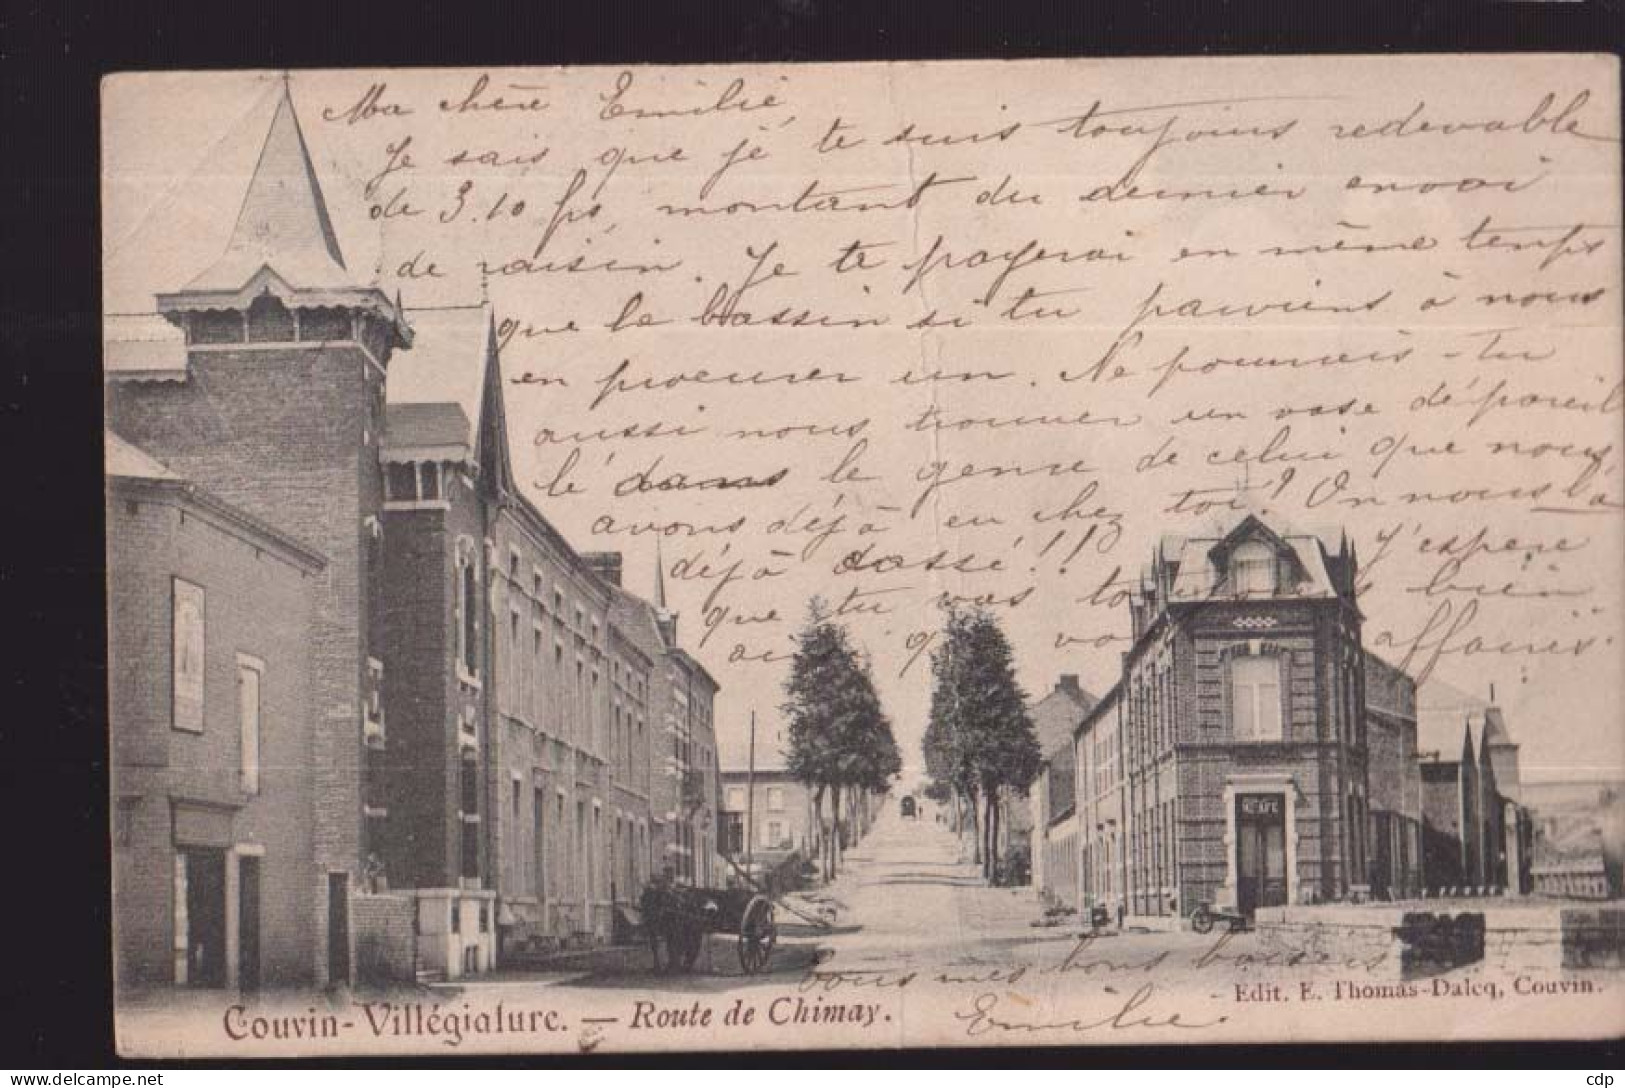 Ma chère Emilie,
Je sais que je te suis toujours redevable
de 3.10 frs, montant du dernier envoi
de raisin. Je te payerai en même temps
que le bassin si tu parviens à nous
en procurer un. Ne pourrais-tu
aussi nous trouver un vase dépareil
lé dans le genre de celui que nous
avons déjà eu chez toi? On nous l'a
déjà cassé!! J'espère
que tu vas toujours bien
ainsi que vos affaires.
Tous mes bons baisers
Emilie.
CAFÉ
Couvin-Villégiature. — Route de Chimay.
Edit. E. Thomas-Dalcq, Couvin.
cdp